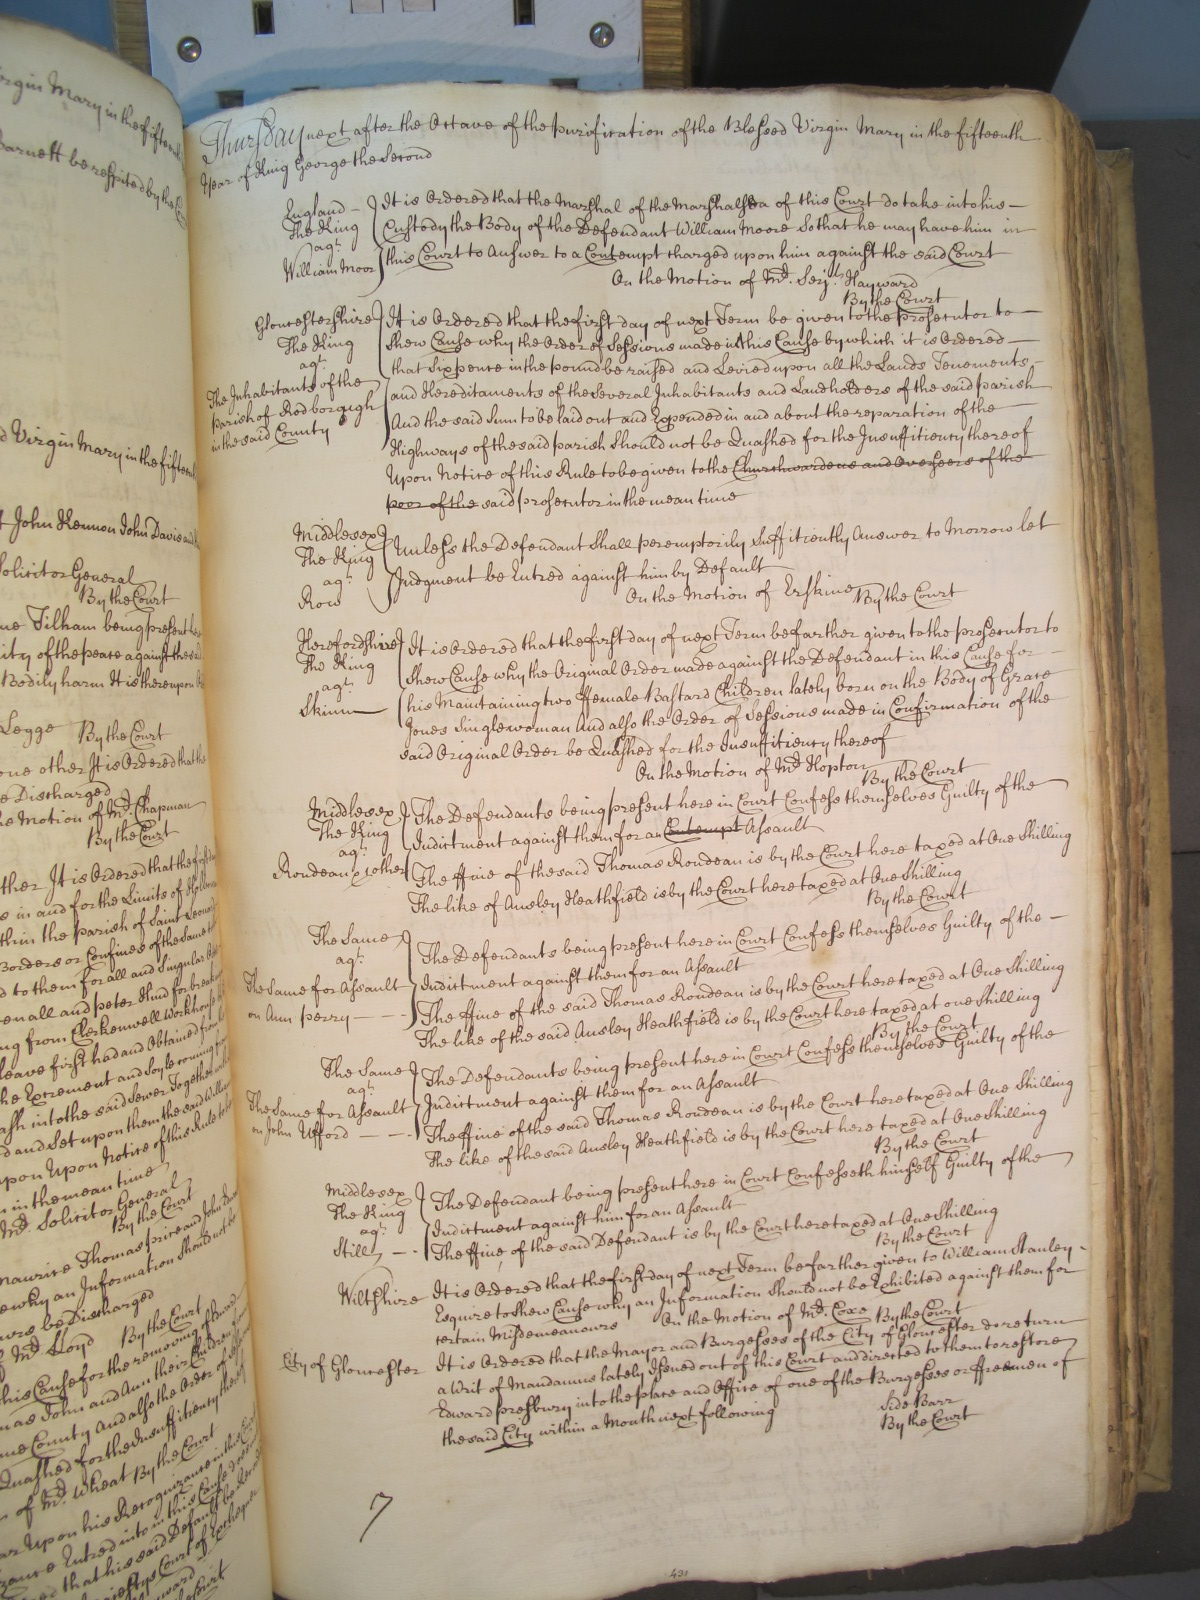 Virgin Mary in the fifteenth
Barnett be respited by the
Virgin Mary in the fifteenth
John Kennon John Davis and
Solicitor General
By the Court
Tilham being present here
ity of the peace against the
Bodily harm It is thereupon
Legge By the Court
one other It is Ordered that the
Discharged
the Motion of Mr. Chapman
By the Court
ther It is Ordered that the
s in and for the Limits of
thin the parish of Saint
Borders or Confines of the Same
d to them for all and Singular
and peter Hind for
ng from Clerkenwell Workhouse
leave first had and Obtained from
the Exrement and Soyle coming from
ash into the said Sewer Together with
d and Set upon them the said
upon Upon Notice of this Rule to be
in the mean time
Mr. Solicitor General
By the Court
Maurice Thomas price and John
why an Information Should not be
be Discharged
Mr. Lloyd By the Court
this Cause for the removing of
mas John and Ann their Children
County And also the Order of
Quashed for the Insufficiency thereof
of Mr. Wheat By the Court
Upon his Recognizance in this
Entred into in this Cause
that his said Default be
Majestys Court of Exchequer
Thursday next after the Octave of the purification of the Blessed Virgin Mary in the fifteenth
Year of King George the Second
England —
The King
agt.
William Moor
It is Ordered that the Marshal of the Marshalsea of this Court do take into his —
Custody the Body of the Defendant William Moore So that he may have him in
this Court to Answer to a Contempt charged upon him against the said Court
On the Motion of Mr. Serjt. Hayward
By the Court
Gloucestershire
The King
agt.
The Inhabitants of the
parish of Rodborough
in the said County
It is Ordered that the first day of next Term be given to the prosecutor to —
Shew Cause why the Order of Sessions made in this Cause by which it is Ordered —
that Six pence in the pound be raised and Levied upon all the Lands Tenements —
and Hereditaments of the several Inhabitants and Landholders of the said parish
And the said Sum to be laid out and Expended in and about the reparation of the —
Highways of the said parish Should not be Quashed for the Insufficiency thereof
Upon Notice of this Rule to be given to the Churchwardens and Overseers of the
poor of the said prosecutor in the mean time
Middlesex
The King
agt.
Row
Unless the Defendant Shall peremptorily Sufficiently Answer to Morrow let
Judgment be Entred against him by Default
On the Motion of Erskine By the Court
Herefordshire
The King
agt.
Skinn
It is Ordered that the first day of next Term be farther given to the prosecutor to
Shew Cause why the Original Order made against the Defendant in this Cause for —
his Maintaining two ffemale Bastard Children lately born on the Body of Grace
Jones Singlewoman And also the Order of Sessions made in Confirmation of the
said Original Order be Quashed for the Insufficiency thereof
On the Motion of Mr. Hopton
By the Court
Middlesex
The King
agt.
Rondeau & other
The Defendants being present here in Court Confess themselves Guilty of the
Indictment against them for an Contempt Assault
The ffine of the said Thomas Rondeau is by the Court here taxed at One Shilling
The like of Ansley Heathfield is by the Court here taxed at One Shilling
By the Court
The Same
agt.
The Same for Assault
on Ann perry — — -
The Defendants being present here in Court Confess themselves Guilty of the —
Indictment against them for an Assault
The ffine of the said Thomas Rondeau is by the Court here taxed at One Shilling
The like of the said Ansley Heathfield is by the Court here taxed at one Shilling
By the Court
The Same
agt.
The Same for Assault
on John Ufford — — -
The Defendants being present here in Court Confess themselves Guilty of the
Indictment against them for an Assault
The ffine of the said Thomas Rondeau is by the Court here taxed at One Shilling
The like of the said Ansley Heathfield is by the Court here taxed at One Shilling
By the Court
Middlesex
The King
agt.
Still — -
The Defendant being present here in Court Confesseth himself Guilty of the
Indictment against him for an Assault
The ffine of the said Defendant is by the Court here taxed at One Shilling
By the Court
Wiltshire
It is Ordered that the first day of next Term be farther given to William Stanley -
Esquire to Shew Cause why an Information Should not be Exhibited against them for
certain Misdemeanours On the Motion of Mr. Coxe By the Court
City of Gloucester
It is Ordered that the Mayor and Burgesses of the City of Gloucester do return
a Writ of Mandamus lately Issued out of this Court and directed to them to restore
Edward presbury into the place and Office of one of the Burgesses or ffreemen of
the said City within a Month next following
Side Barr
By the Court
7
431